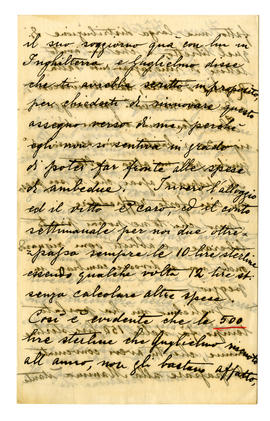 il suo soggiorno quà con lui in
Inghilterra e Guglielmo disse
che ti avrebbe scritto in proposito,
per chiederti di rinnovare questo
assegno verso di me, perchè
egli non si sentiva in grado
di poter far fronte alle spese
di ambedue. Invero l'alloggio
ed il vitto è caro, ed il conto
settimanale per noi due oltre-
passa sempre le 10 lire sterline
essendo qualche volta 12 lire st:
senza calcolare altre spese.
Così è evidente che le 500
lire sterline che Guglielmo
all'anno, non gli bastano affatto,